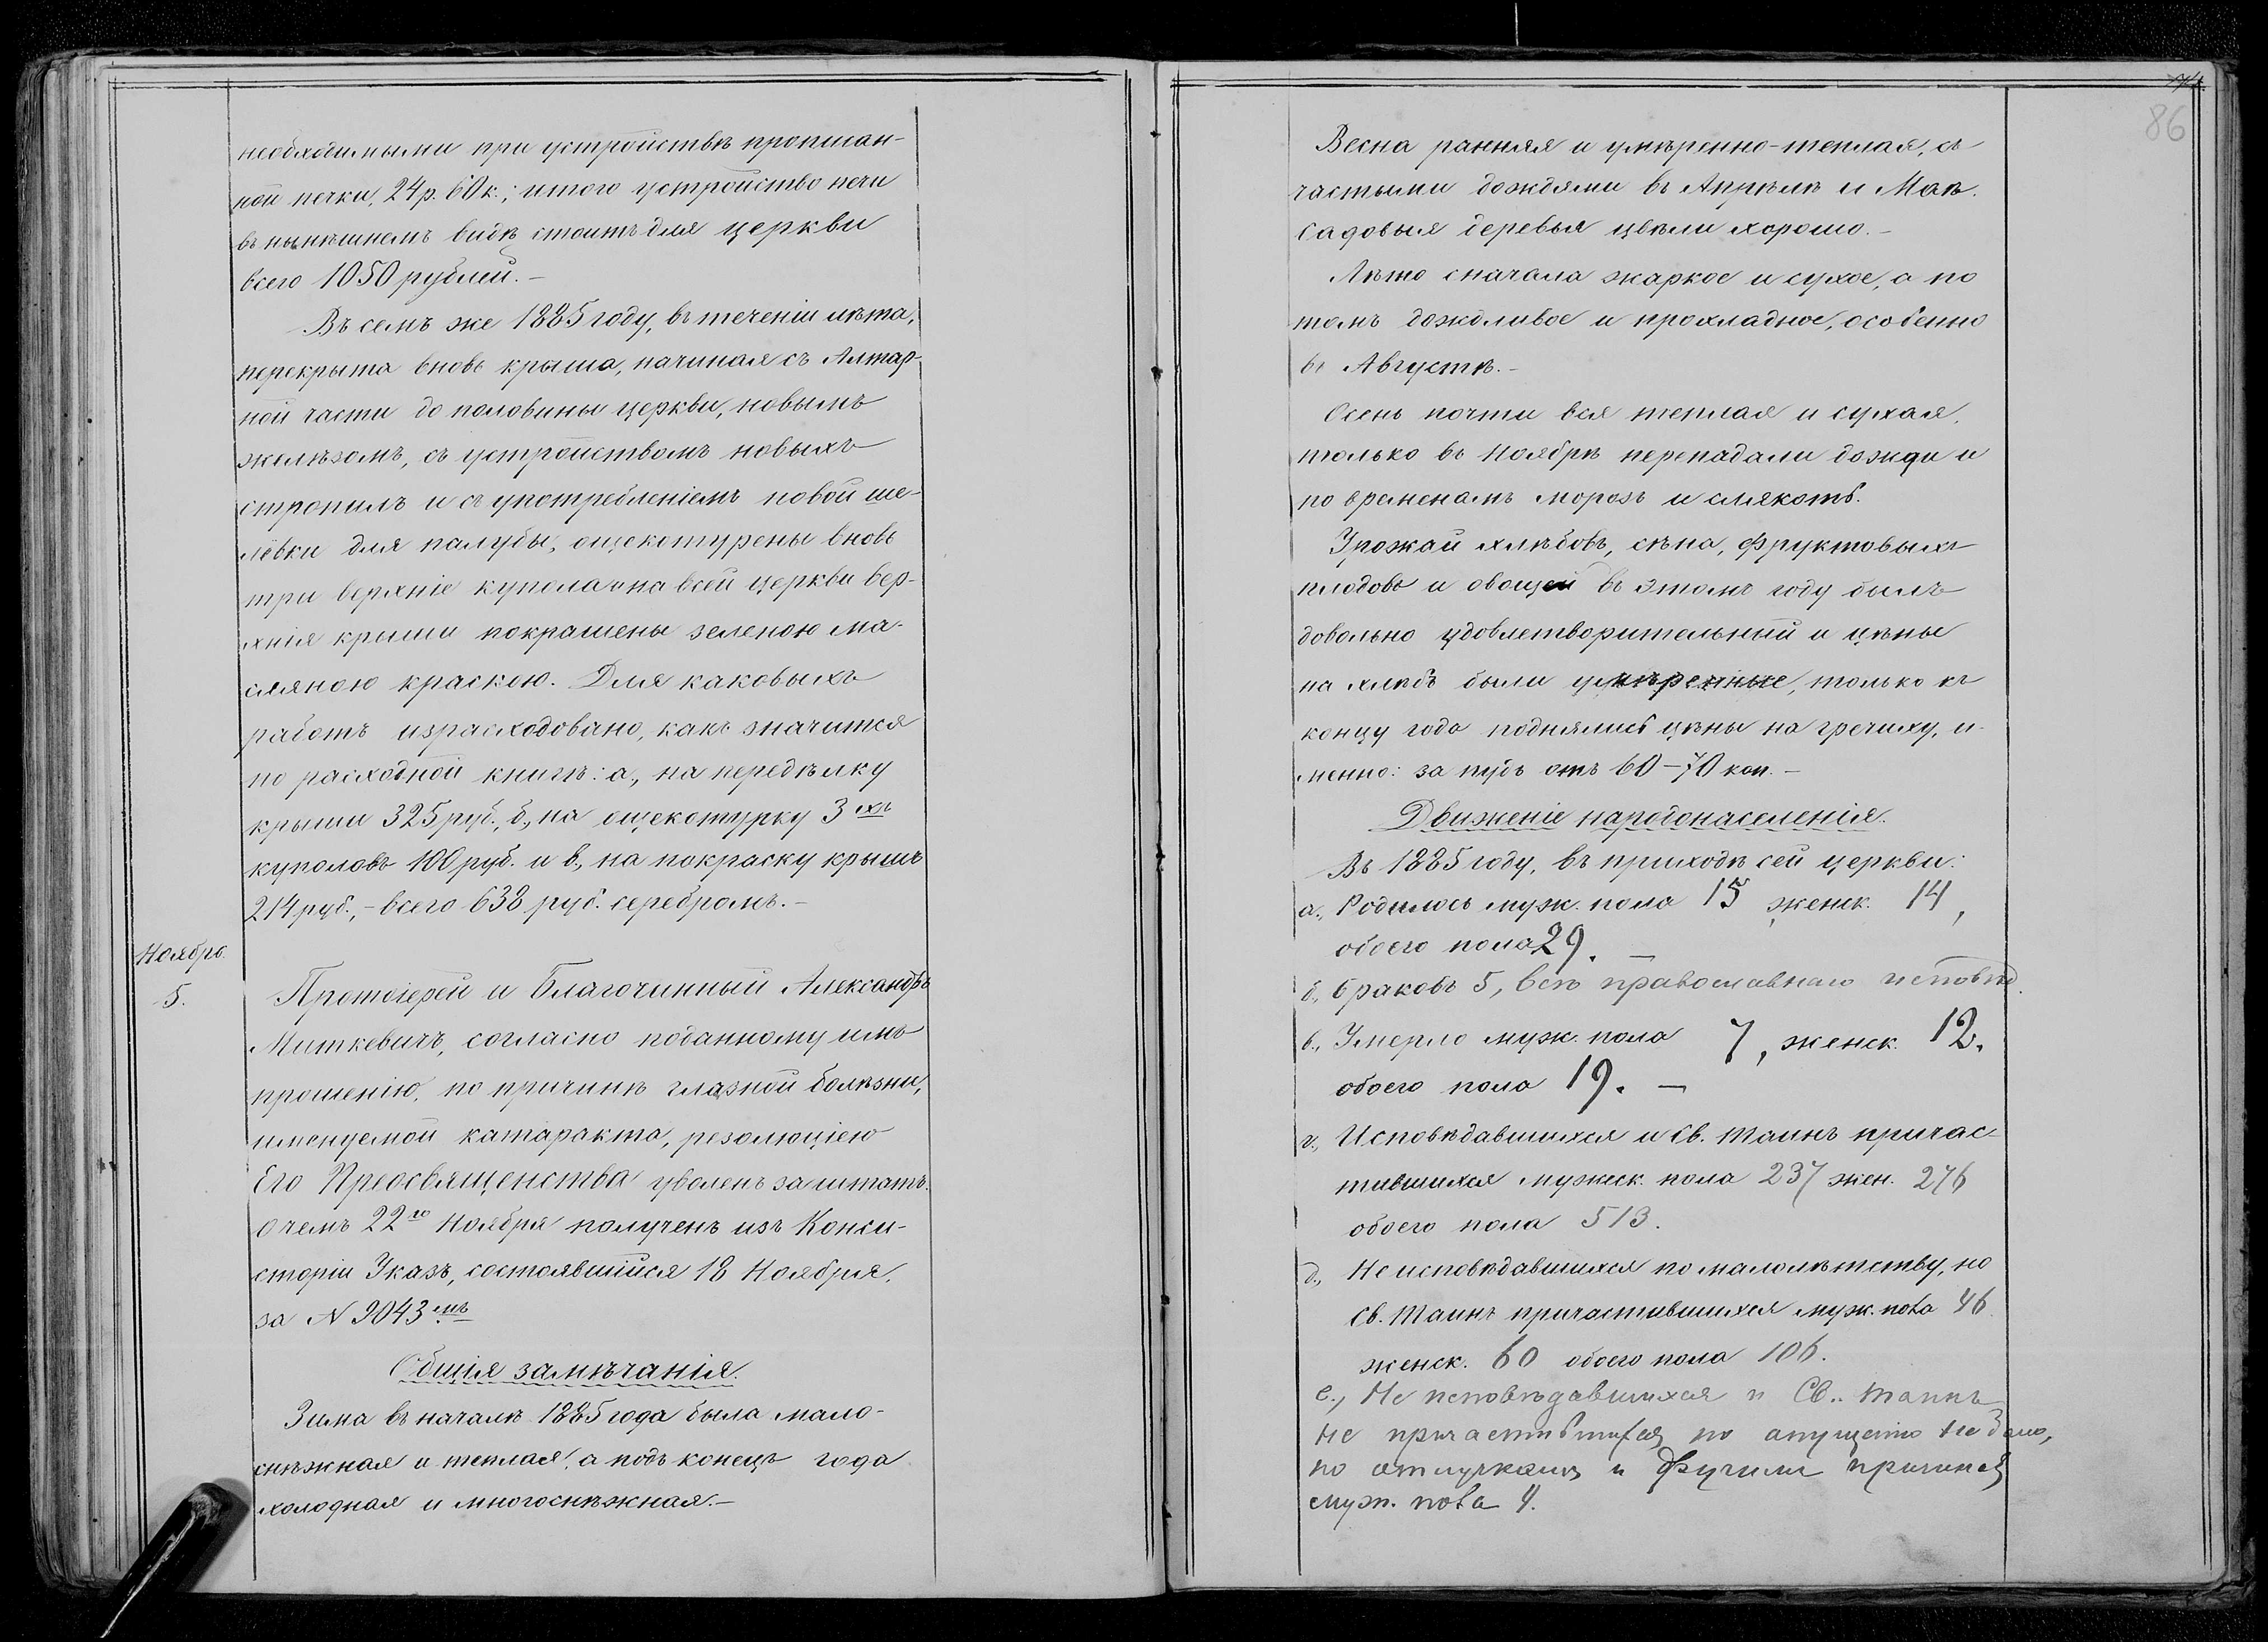 необходимыми при устройствѣ
ной печки, 24 р. 60 к.; итого устройство печи
въ нынѣшнемъ видѣ стоитъ для церкви
всего 1050 рублей.-
Въ семъ же 1885 году, въ теченіи лѣта,
перекрыта вновь крыша, начиная съ Алтар-
ной части до половины церкви, новымъ
желѣзомъ, съ устройствомъ новыхъ
стропилъ и съ употребленіемъ новой ше-
лёвки для палубы, ощекотурены вновь
три верхніе купола и на всей церкви вер-
хнія крыши покрашены зеленою ма-
сляною краскою. Для каковыхъ
работъ израсходовано, какъ значится
по расходной книгѣ: а., на передѣлку
крыши 325 руб., б., на ощекотурку 3хъ
куполовъ 100 руб. и в., на покраску крышъ
214 руб.,- всего 638 руб. серебромъ.-
Ноябрь
5.
Протоіерей и Благочинный Александръ
Миткевичъ, согласно поданному имъ
прошенію, по причинѣ глазной болѣзни,
именуемой катаракта, резолюціею
Его Преосвященства уволенъ за штатъ.
о чемъ 22го Ноября полученъ изъ Конси-
сторіи Указъ, состоявшійся 18 Ноября,
за N 9043мъ
Общія замѣчанія.
Зима въ началѣ 1885 года была мало-
снѣжная и теплая, а подъ конецъ года
холодная и многоснѣжная.-
86
Весна ранняя и умѣренно-теплая, съ
частыми дождями въ Апрѣлѣ и Маѣ.
Садовыя деревья цвѣли хорошо.-
Лѣто сначала жаркое и сухое, а по
томъ дождливое и прохладное, особенно
въ Августѣ.-
Осень почти вся теплая и сухая,
только въ Ноябрѣ перепадали дожди и
по временамъ морозъ и слякоть.
Урожай хлѣбовъ, сѣна, фруктовыхъ
плодовъ и овощей въ этомъ году былъ
довольно удовлетворительный и цѣны
на хлѣбъ были умѣренные, только къ
концу года поднялись цѣны на гречиху, и-
менно: за пудъ отъ 60-70 коп.-
Движеніе народонаселенія.
Въ 1885 году, въ приходѣ сей церкви:
а., Родилось муж. пола 15, женск. 14,
обоего пола 29.-
б., браковъ 5, всѣ православнаго исповѣд.
в., Умерло муж. пола 7, женск. 12.
обоего пола 19.-
г., Исповѣдавшихся и Св. Таинъ причас-
тившихся мужеск. пола 237 жен. 276
обоего пола 513.
д., Не исповѣдавшихся по малолѣтству, но
Св. Таинъ причастившихся муж. пола 46
женск. 60 обоего пола 106.
е., Не исповѣдавшихся и Св. Таинъ
не причастившихся по опущенію не было,
по отлучкамъ и другимъ причинамъ
муж. пола 4.